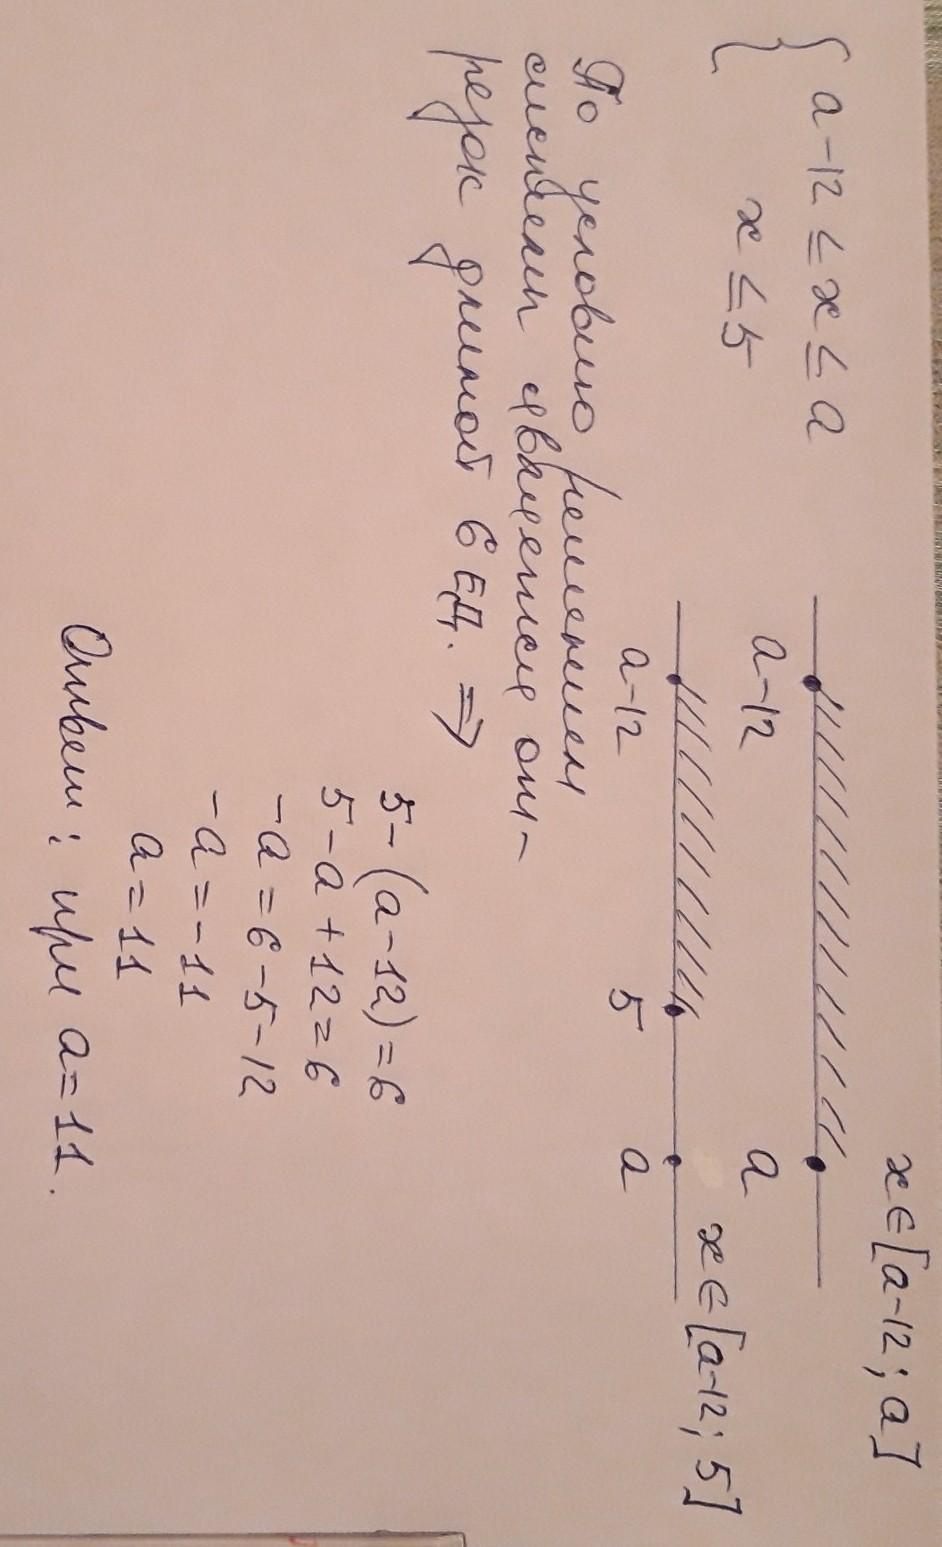 { a-12 ≤ x ≤ a
x ≤ 5
x∈[a-12; a]
a-12 a
x∈[a-12; 5]
a-12 5 a
По условию решением
системы является от-
резок длиной 6 ЕД. ⇒
5-(a-12)=6
5-a+12=6
-a=6-5-12
-a=-11
a=11
Ответ: при a=11.